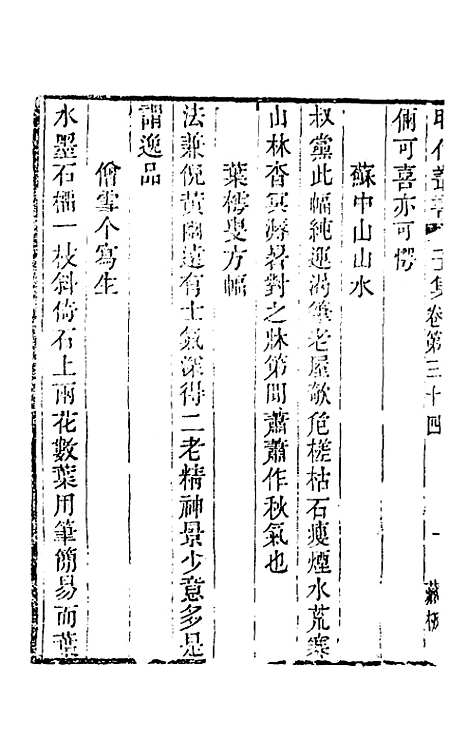 昭代叢書 壬集卷第三十四
倆可喜亦可愕
蘇中山山水
叔黨此幅純運渴筆老屋欹危槎枯石瘦煙水荒寒
山林杳冥溽暑對之牀第間蕭蕭作秋氣也
葉樗叟方幅
法兼倪黃幽遠有士氣深得二老精神景少意多是
謂逸品
僧雪个寫生
水墨石榴一枝斜倚石上兩花數葉用筆簡易而葉